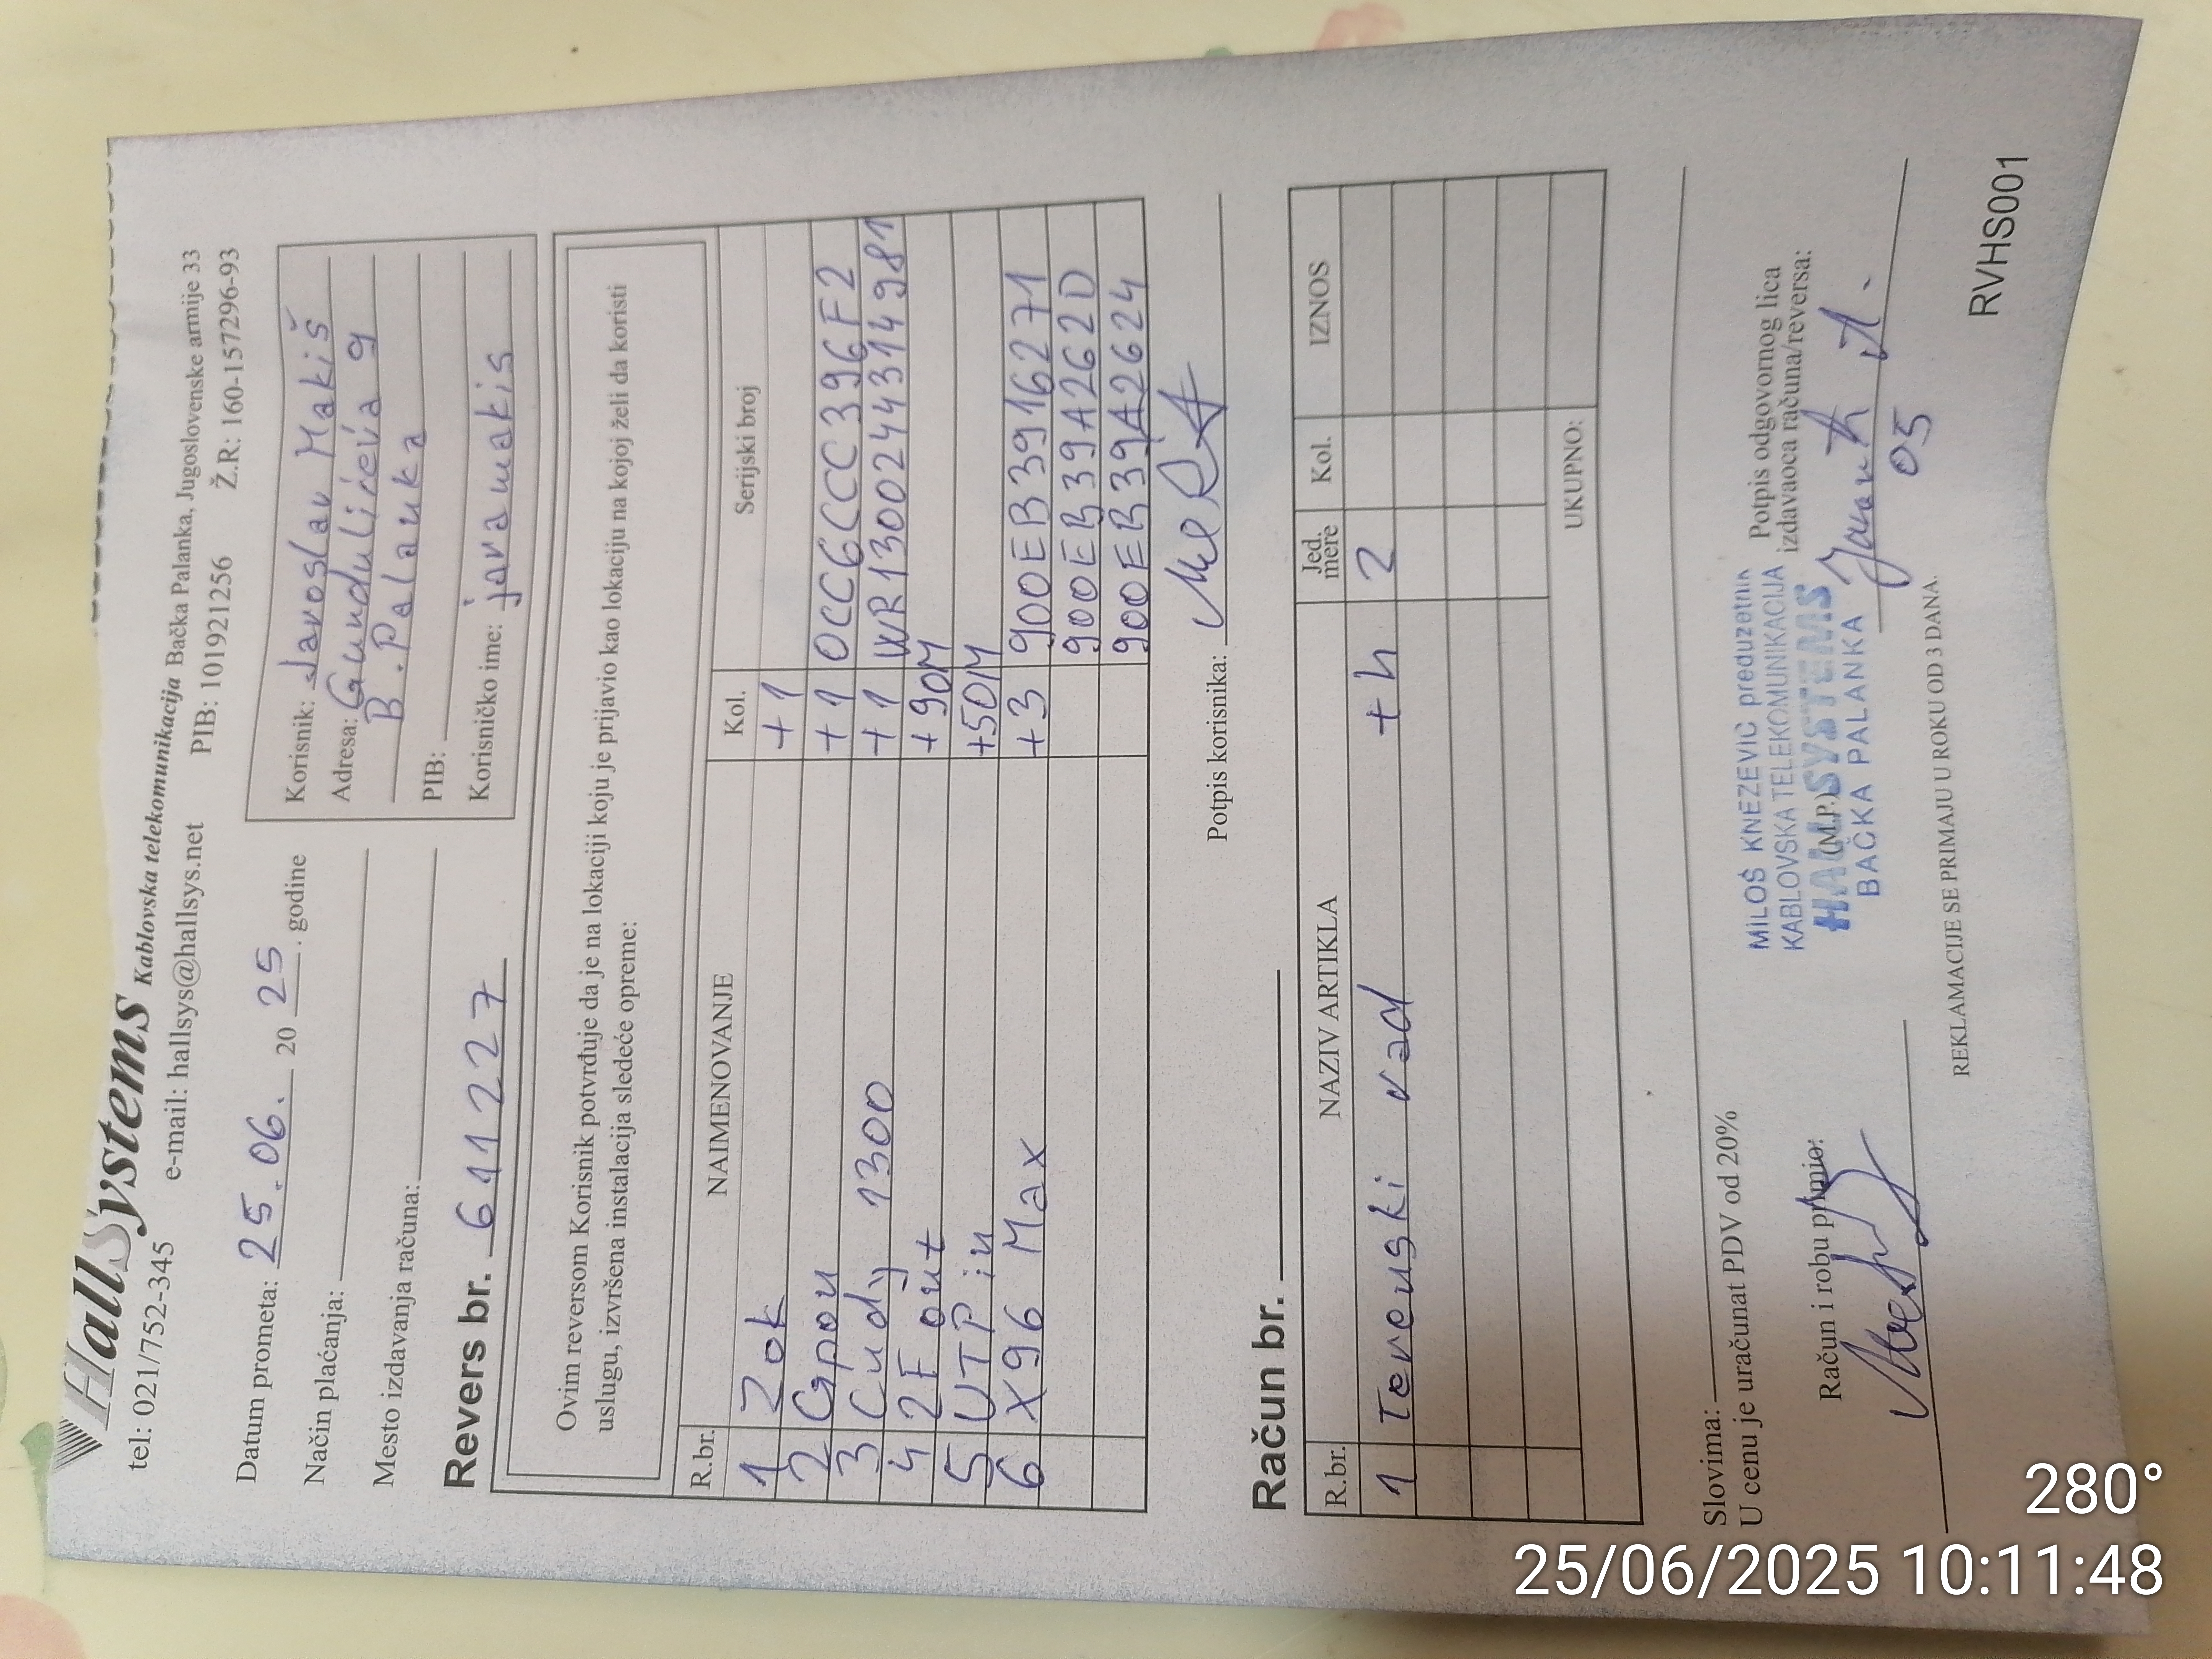 HallSystems Kablovska telekomunikacija Bačka Palanka, Jugoslovenske armije 33
tel: 021/752-345 e-mail: hallsys@hallsys.net PIB: 101921256 Ž.R: 160-157296-93
Datum prometa: 25.06. 20 25. godine
Način plaćanja:
Mesto izdavanja računa:
Korisnik: Jaroslav Makiš
Adresa: Gundulićeva 9
B. Palanka
PIB:
Korisničko ime: jaramakis
Revers br. 611227
Ovim reversom Korisnik potvrđuje da je na lokaciji koju je prijavio kao lokaciju na kojoj želi da koristi
uslugu, izvršena instalacija sledeće opreme:
R.br. NAIMENOVANJE Kol. Serijski broj
1 Zok +1
2 Gpon +1 0CC6CCC396F2
3 Cudy 1300 +1 WR1300244314981
4 2F out +90M
5 UTP in +50M
6 X96 Max +3 900EB3916271
900EB39A262D
900EB39A2624
Potpis korisnika:
Račun br.
R.br. NAZIV ARTIKLA Jed. mere Kol. IZNOS
1 Terenski rad +h 2
UKUPNO:
Slovima:
U cenu je uračunat PDV od 20%
Račun i robu primio:
MILOŠ KNEZEVIĆ preduzetnik
KABLOVSKA TELEKOMUNIKACIJA
HALL SYSTEMS
(M.P.)
BAČKA PALANKA
Potpis odgovornog lica
izdavaoca računa/reversa:
05
REKLAMACIJE SE PRIMAJU U ROKU OD 3 DANA.
RVHS001
280°
25/06/2025 10:11:48